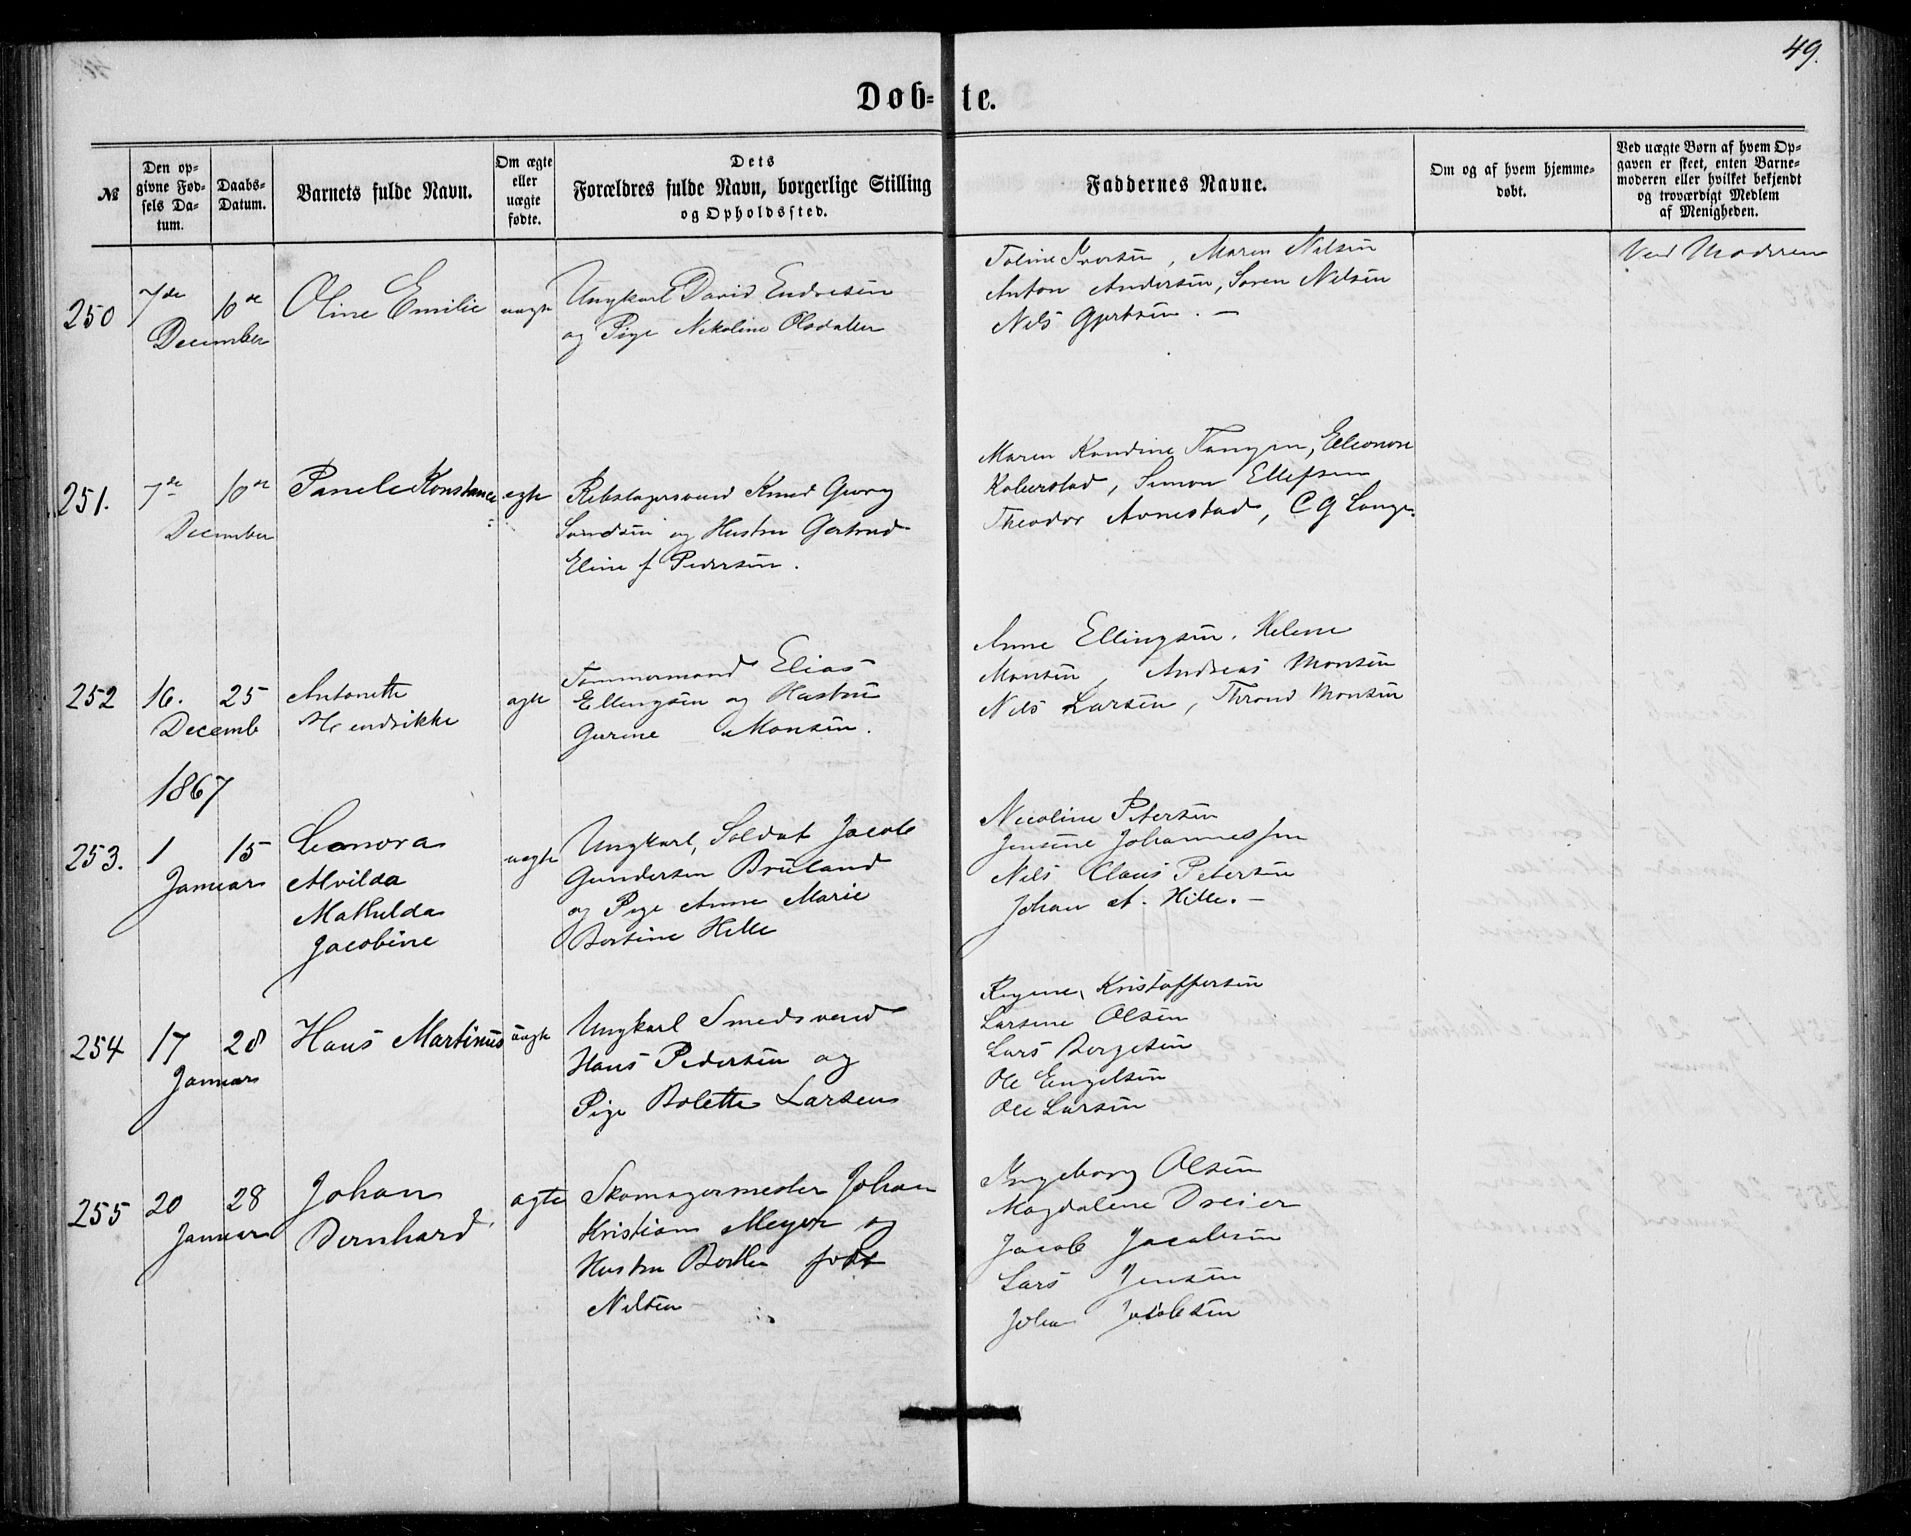 49.
Døb-te.
№
Den opgivne Fødsels Datum.
Daabs-Datum.
Barnets fulde Navn.
Om ægte eller uægte fødte.
Dets Forældres fulde Navn, borgerlige Stilling og Opholdssted.
Faddernes Navne.
Om og af hvem hjemmedøbt.
Ved uægte Børn af hvem Opgaven er skeet, enten Barnemoderen eller hvilket bekjendt og troværdigt Medlem af Menigheden.
250 7de 10de
December
Oline Emilie
uægte
Ungkarl David Endresen
og Pige Nikoline Olsdatter
Toline Iversen, Maren Nilsen
Anton Andersen, Søren Nilsen
Nils Gjertsen. —
Ved Moderen
251. 7de 10de
December
Panele Konstance
ægte
Rebslagersvend Knud Georg
Svendsen og Hustru Gertrud
Eline f Pedersen.
Maren Kondine Tangen, Elleonore
Kolverstad, Simon Ellefsen
Theodor Aonestad, C G Lange.
252 16. 25
Decemb
Antonette
Hendrikke
ægte
Tømmermand Elias
Ellingsen og Hustru
Gurine Monsen.
Anne Ellingsen, Helene
Monsen, Andreas Monsen
Nils Larsen, Thrond Monsen
1867
253. 1 15
Januar
Leonora
Alvilda
Mathilda
Jacobine
uægte
Ungkarl, Soldat Jacob
Gundersen Bruland
og Pige Anne Marie
Bertine Hille
Nicoline Petersen
Jensine Johannessen
Nils Claus Petersen
Johan A. Hille. —
254 17 28
Januar
Hans Martinus
uægte
Ungkarl Smedsvend
Hans Pedersen og
Pige Bolette Larsen
Regine Kristoffersen
Larsine Olsen
Lars Borgesen
Ole Engelsen
Ole Larsen
255 20 28
Januar
Johan
Bernhard
ægte
Skomagermester Johan
Kristian Meyer og
Hustru Berthe født
Nilsen
Ingeborg Olsen
Magdalene Dreier
Jacob Jacobsen
Lars Jensen
Johan Jacobsen